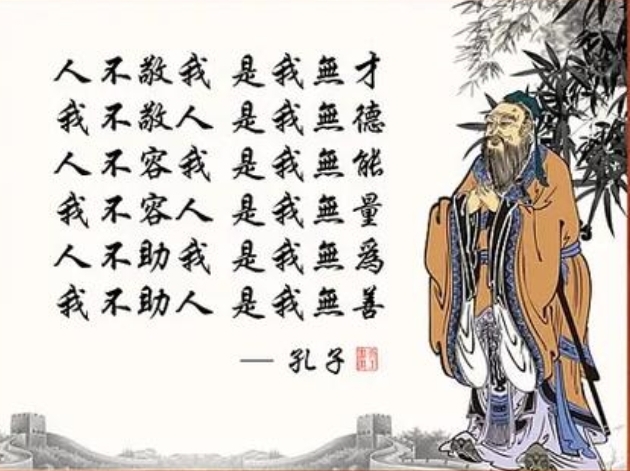 人不敬我 是我無才
我不敬人 是我無德
人不容我 是我無能
我不容人 是我無量
人不助我 是我無為
我不助人 是我無善
— 孔子